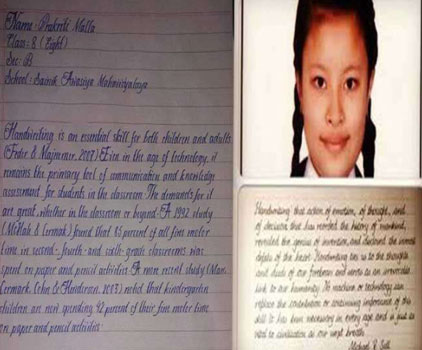 Name: Prakriti Malla
Class: 8 (Eight)
Sec: B
School: Sainik Awasiya Mahavidyalaya
Handwriting is an essential skill for both children and adults
(Feder & Majnemer, 2007). Even in the age of technology, it
remains the primary tool of communication and knowledge
assessment for students in the classroom. The demands for it
are great, whether in the classroom or beyond. A 1992 study
(McHale & Cermak) found that 85 percent of all fine motor
time in second- fourth- and sixth-grade classrooms was
spent on paper and pencil activities. A more recent study (Marr,
Cermak, Cohn & Henderson, 2003) noted that kindergarten
children are now spending 42 percent of their fine motor time
on paper and pencil activities
Handwriting that action of emotion, of thought, and
of decision that has recorded the history of mankind,
revealed the genius of invention, and disclosed the inmost
depths of the heart. Handwriting ties us to the thoughts
and deeds of our forebears and serves as an irrevocable
link to our humanity. No machine or technology can
replace the contribution or continuing importance of this
skill. It has been necessary in every age and is just as
vital to civilization as our next breath.
Michael R. Sull